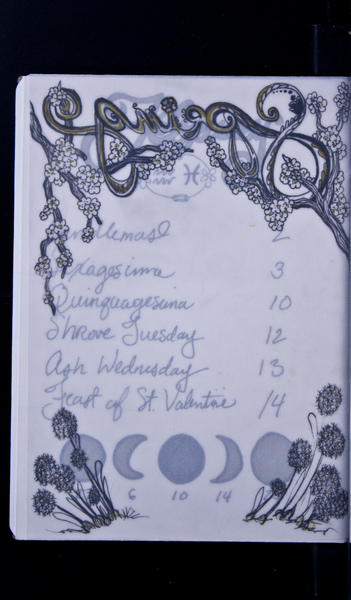 ♓
2
3
Quinquagesima 10
Shrove Tuesday 12
Ash Wednesday 13
Feast of St. Valentine 14
6 10 14